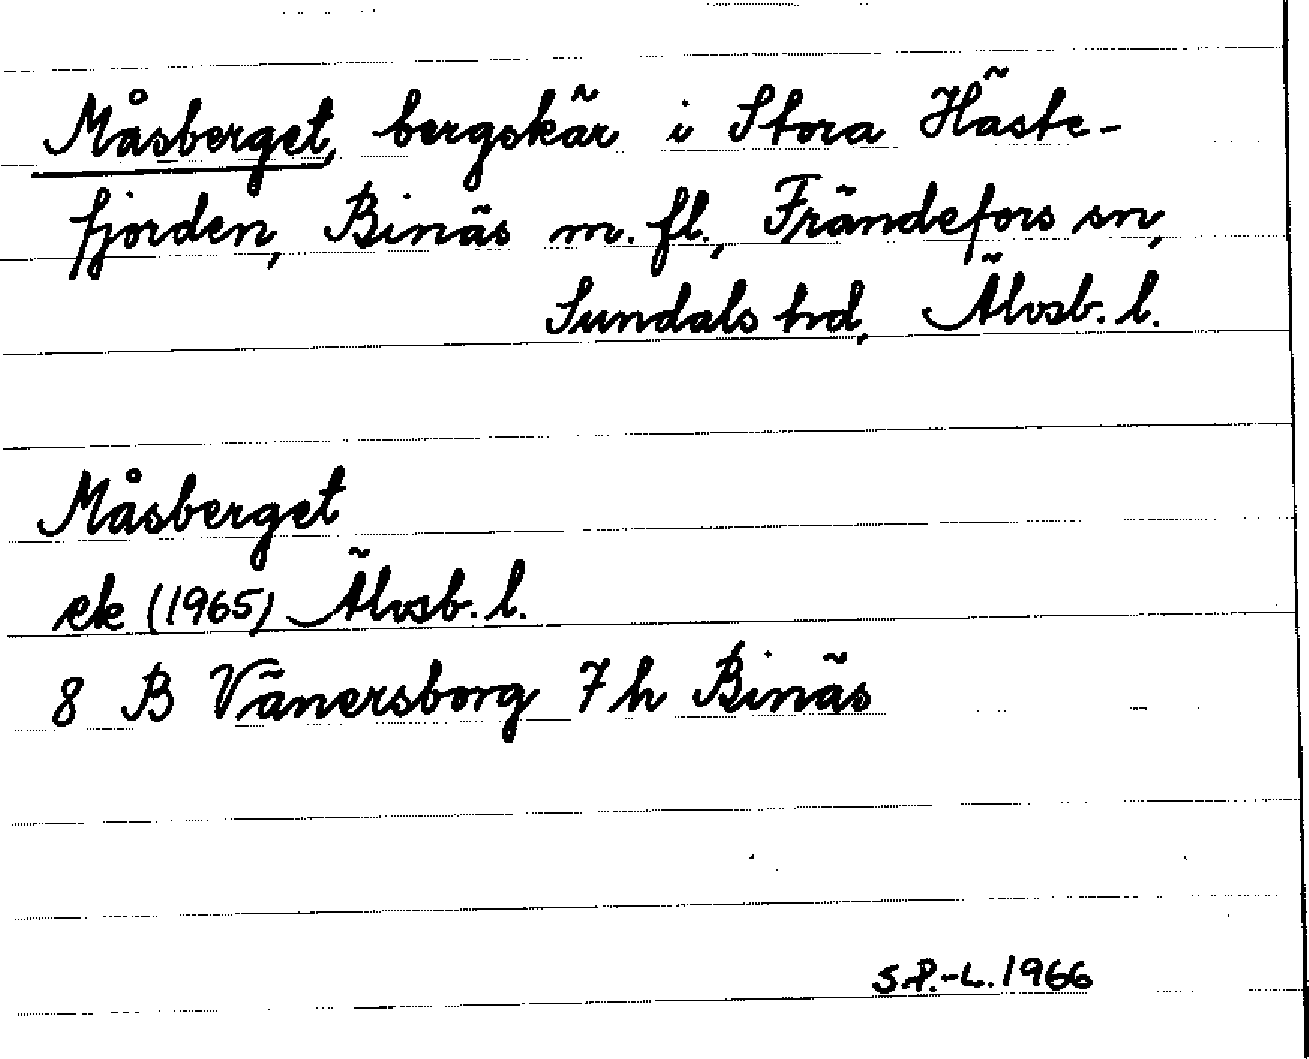 Måsberget, bergskär i Stora Häste-
fjorden, Binäs m. fl., Frändefors sn,
Sundals hd, Älvsb. l.
Måsberget
ek (1965) Älvsb. l.
8 B Vänersborg 7 h Binäs
S.P.-L. 1966